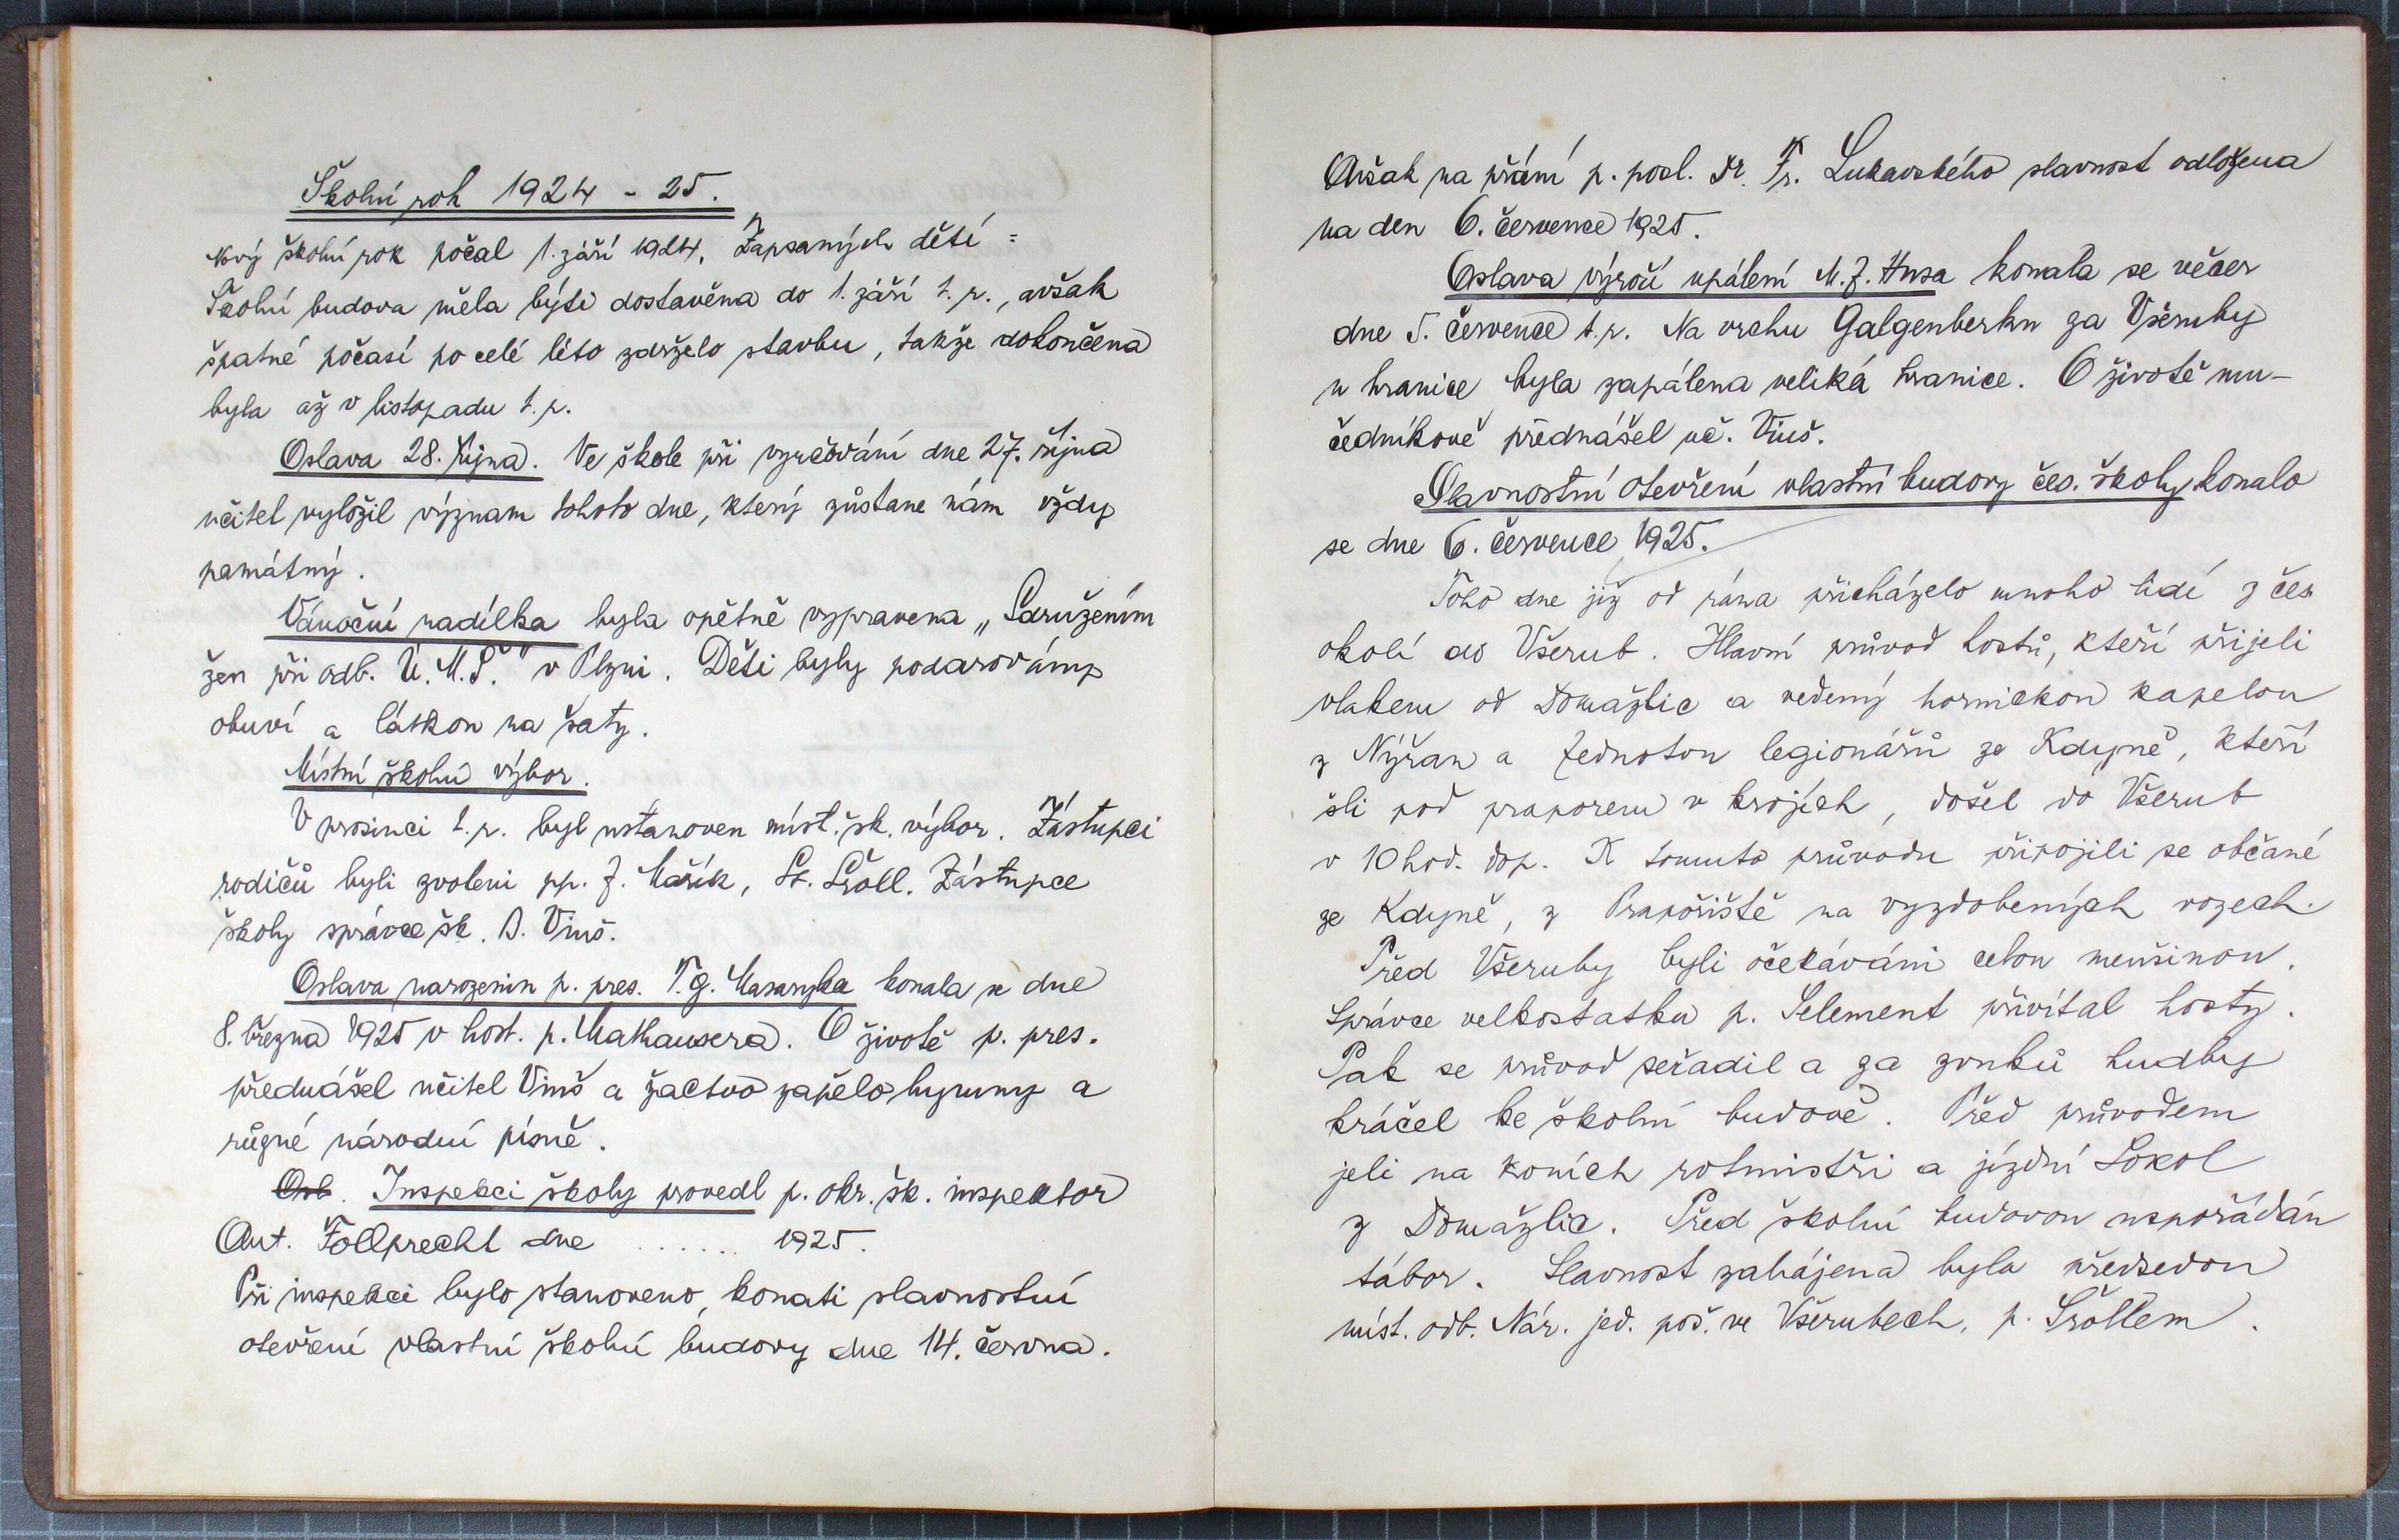 Školní rok 1924 - 25.
Nový školní rok počal 1. září 1924. Zapsaných dětí =
Školní budova měla býti dostavěna do 1. září t. r., avšak
špatné počasí po celé léto zdrželo stavbu, takže dokončena
byla až v listopadu t. r.
Oslava 28. října. Ve škole při vyučování dne 27. října
učitel vyložil význam tohoto dne, který zůstane nám vždy
památný.
Vánoční nadílka byla opětně vypravena „Sdružením
žen při odb. Ú. M. Š." v Plzni. Děti byly podarovámy
obuví a látkou na šaty.
Místní školní výbor.
V prosinci t. r. byl ustanoven míst. šk. výbor. Zástupci
rodičů byli zvoleni pp. J. Mařík, St. Šröll. Zástupce
školy správce šk. B. Viuš.
Oslava narozenin p. pres. T. G. Masaryka konala se dne
8. března 1925 v host. p. Mathausera. O životě p. pres.
přednášel učitel Viuš a žactvo zapělo hymny a
různé národní písně.
Osl. Inspekci školy provedl p. okr. šk. inspektor
Ant. Follprecht dne ...... 1925.
Při inspekci bylo stanoveno, konati slavnostní
otevření vlastní školní budovy dne 14. června.
Avšak na přání p. posl. Dr. Fr. Lukavského slavnost odložena
na den 6. července 1925.
Oslava výročí upálení M. J. Husa konala se večer
dne 5. července t. r. Na vrchu Galgenberku za Všeruby
u hranice byla zapálena veliká hranice. O životě mu-
čedníkově přednášel uč. Viuš.
Slavnostní otevření vlastní budovy čes. školy konalo
se dne 6. července 1925.
Toho dne již od rána přicházelo mnoho lidí z čes
okolí do Všerub. Hlavní průvod hostů, kteří přijeli
vlakem od Domažlic a vedený hornickou kapelou
z Nýřan a Jednotou legionářů ze Kdyně, kteří
šli pod praporem v krojích, došel do Všerub
v 10 hod. dop. K tomuto průvodu připojili se občané
ze Kdyně, z Prapořiště na vyzdobených vozech.
Před Všeruby byli očekáváni celou menšinou.
Správce velkostatku p. Selement přivítal hosty.
Pak se průvod seřadil a za zvuků hudby
kráčel ke školní budově. Před průvodem
jeli na koních rotmistři a jízdní Sokol
z Domažlic. Před školní budovou uspořádán
tábor. Slavnost zahájena byla předsedou
míst. odb. Nár. jed. poš. ve Všerubech, p. Šröllem.